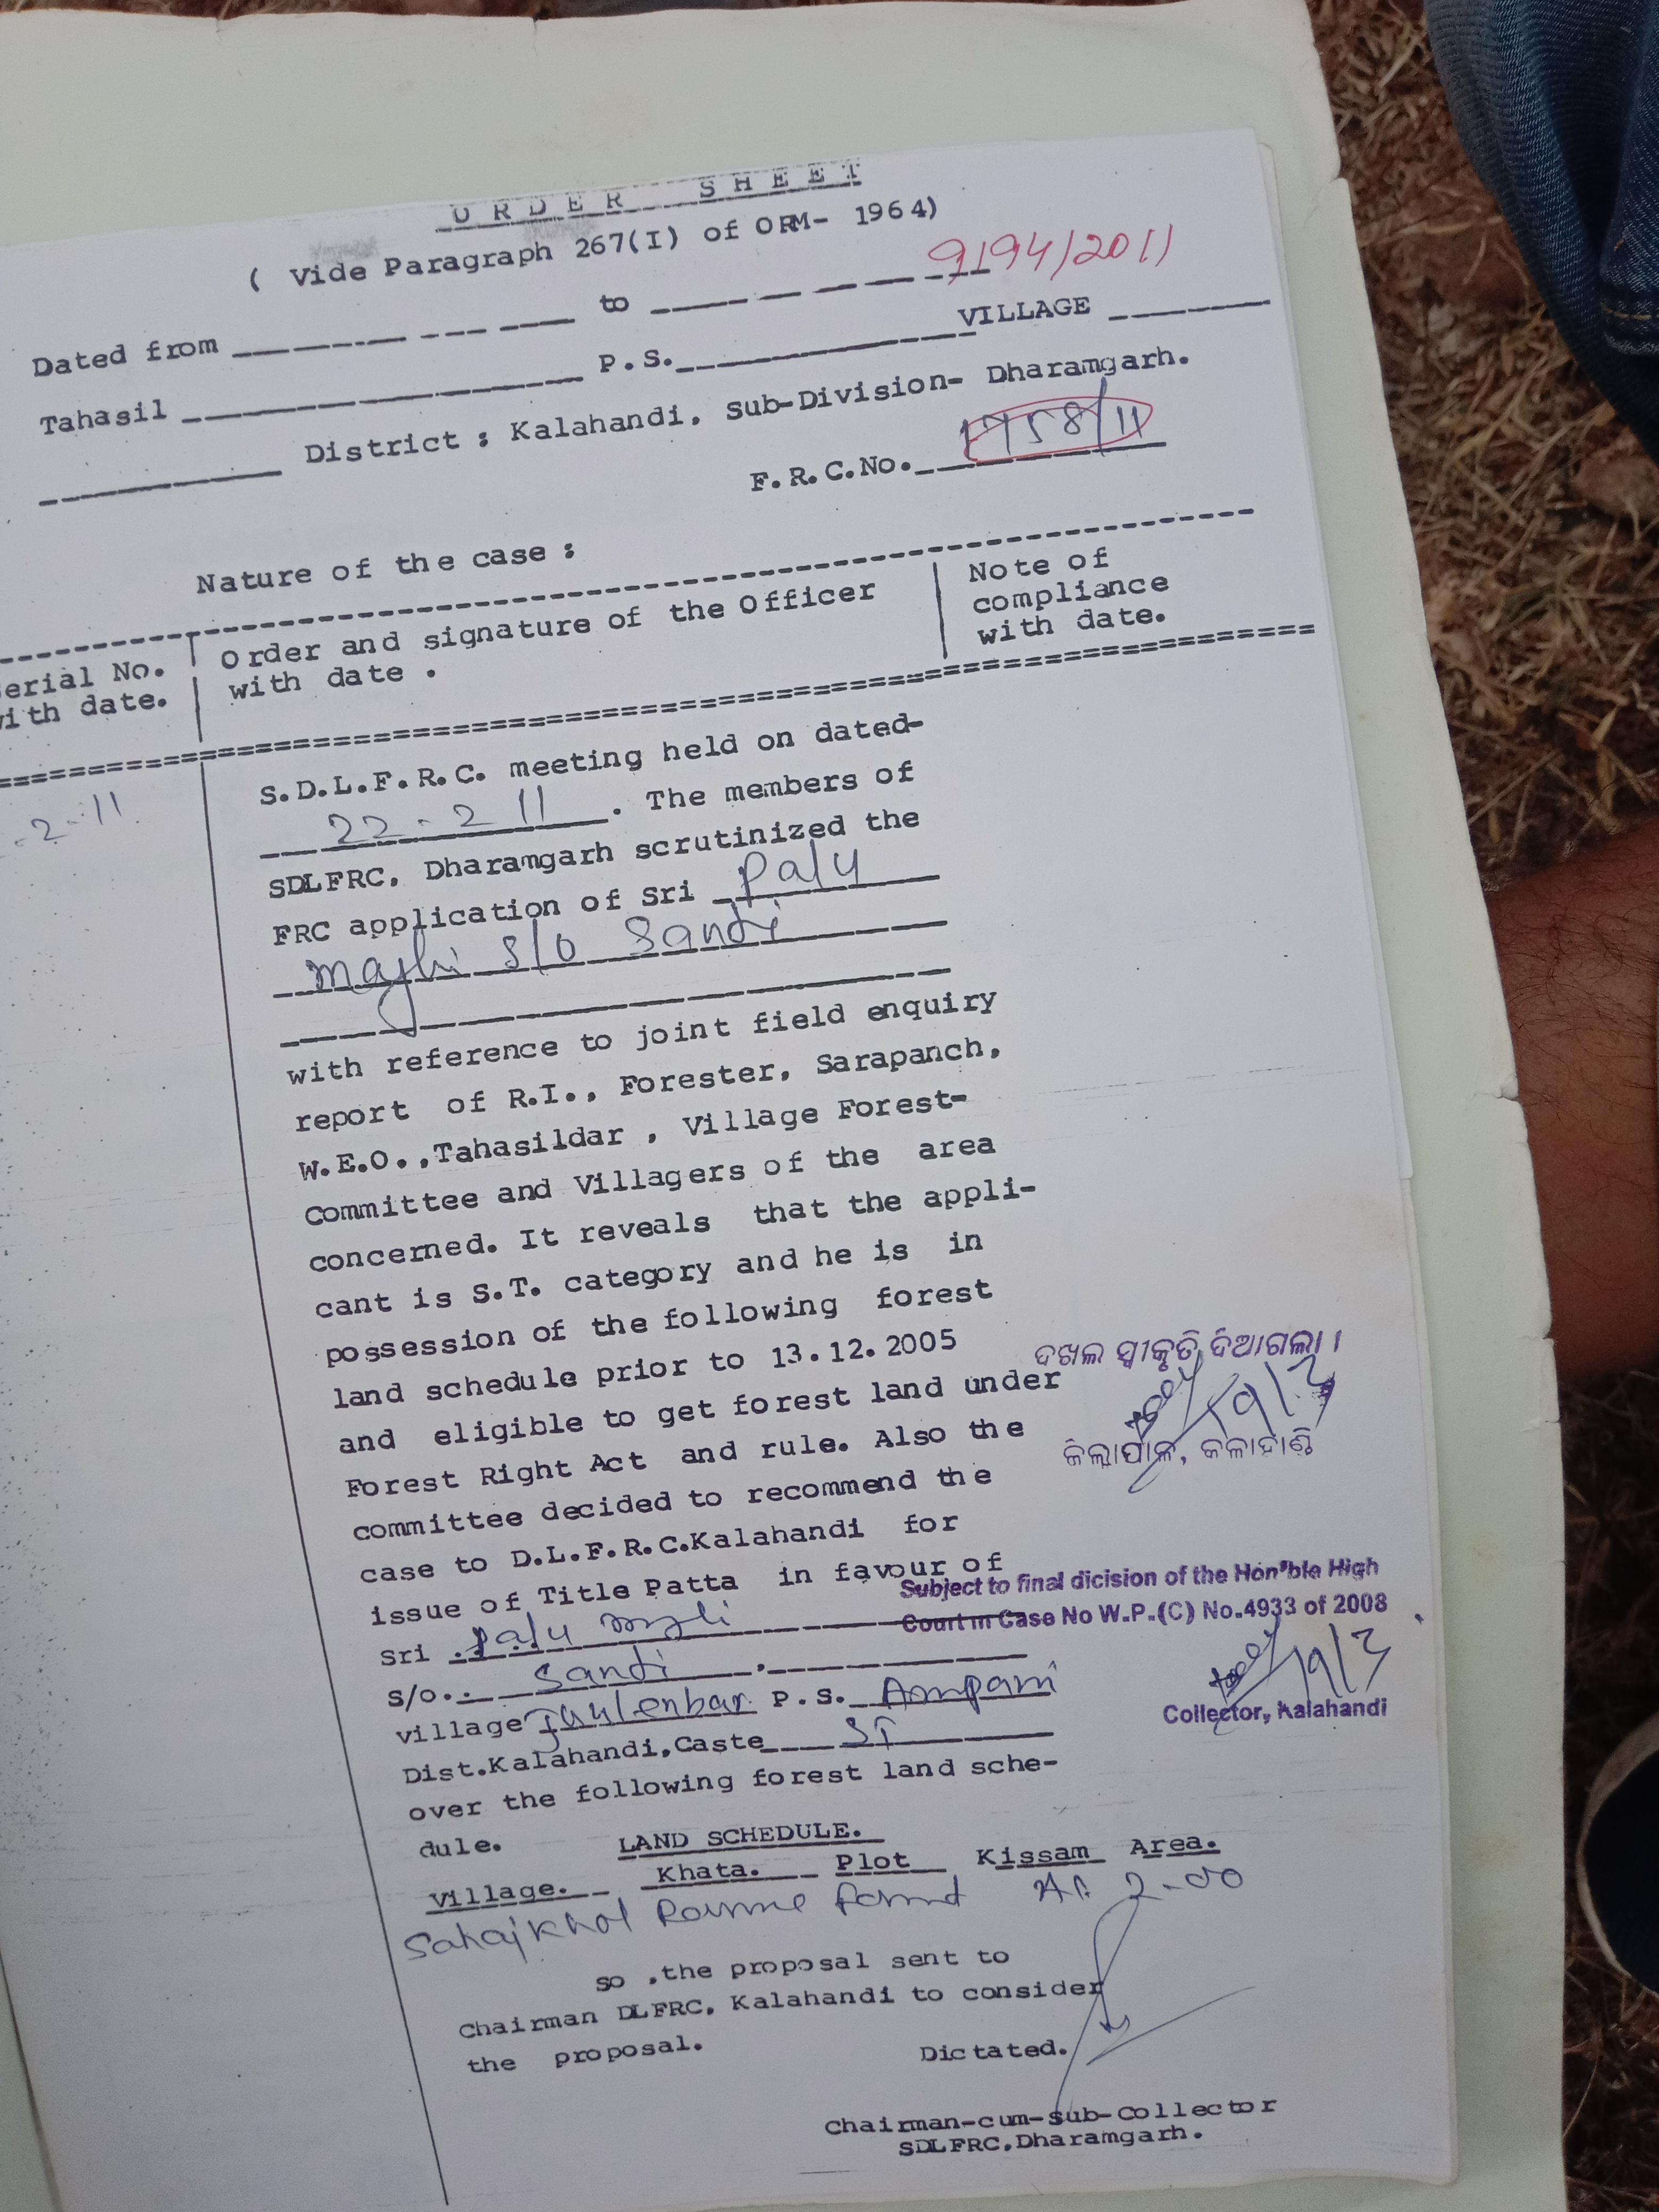 ORDER SHEET
( Vide Paragraph 267(I) of ORM- 1964)
9194/2011
Dated from to
Tahasil P.S. VILLAGE
District : Kalahandi, Sub-Division- Dharamgarh.
F.R.C.No. 1758/11
Nature of the case :
erial No.
ith date.
Order and signature of the Officer
with date .
Note of
compliance
with date.
-2-11
S.D.L.F.R.C. meeting held on dated-
22-2 11 . The members of
SDLFRC, Dharamgarh scrutinized the
FRC application of Sri Palu
Majhi S/o Sandi
with reference to joint field enquiry
report of R.I., Forester, Sarapanch,
W.E.O.,Tahasildar , Village Forest-
Committee and Villagers of the area
concerned. It reveals that the appli-
cant is S.T. category and he is in
possession of the following forest
land schedule prior to 13.12.2005
and eligible to get forest land under
Forest Right Act and rule. Also the
committee decided to recommend the
case to D.L.F.R.C.Kalahandi for
issue of Title Patta in favour of
Sri Palu
S/o.. Sandi
village P.S. Ampani
Dist.Kalahandi,Caste ST
over the following forest land sche-
dule.
ଦଖଲ ସ୍ୱୀକୃତି ଦିଆଗଲା ।
19/3
ଜିଲ୍ଲାପାଳ, କଳାହାଣ୍ଡି
Subject to final dicision of the Hon'ble High
Court in Case No W.P.(C) No.4933 of 2008
19/3
Collector, Kalahandi
LAND SCHEDULE.
Village. Khata. Plot Kissam Area.
Sahajkhol 2-00
so ,the proposal sent to
Chairman DLFRC, Kalahandi to consider
the proposal.
Dictated.
Chairman-cum-Sub-Collector
SDLFRC,Dharamgarh.